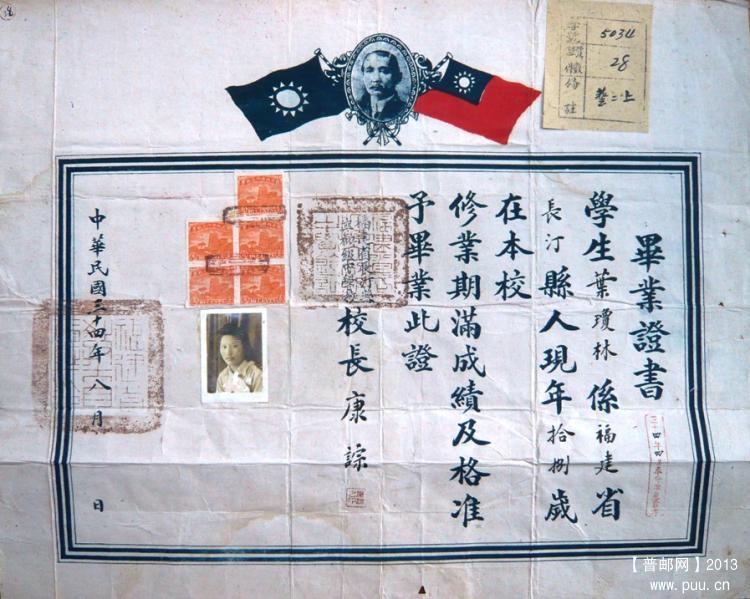 畢業證書
學生葉瓊林係福建省
長汀縣人現年拾捌歲
在本校
修業期滿成績及格准
予畢業此證
校長康
中華民國三十四年八月 日
5034
28
【普邮网】2013
www.puu.cn